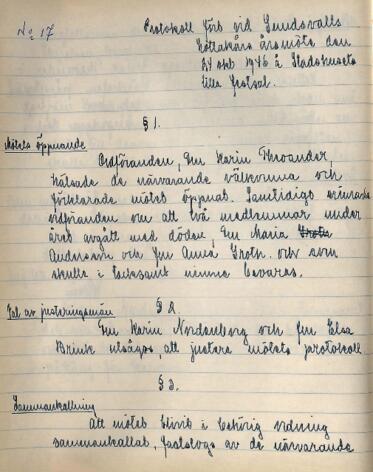 No 17
Protokoll förb vid Sundsvalls
Lottakårs årsmöte den
24 okt 1946 å Stadshusets
lilla festsal.
§ 1.
Mötets öppnande
Ordföranden, Fru Karin Theander,
hälsade de närvarande välkomna och
förklarade mötet öppnat. Samtidigt erinrade
ordföranden om att två medlemmar under
året avgått med döden, Fru Maria Groth
Andersson och Fru Anna Groth. och som
skulle i tacksamt minne bevaras.
Val av justeringsmän
§ 2.
Fru Karin Nordenborg och Fru Elsa
Brink utsågos, att justera mötets protokoll.
§ 3.
Sammankallning
Att mötet blivit i behörig ordning
sammankallat, fastslogs av de närvarande